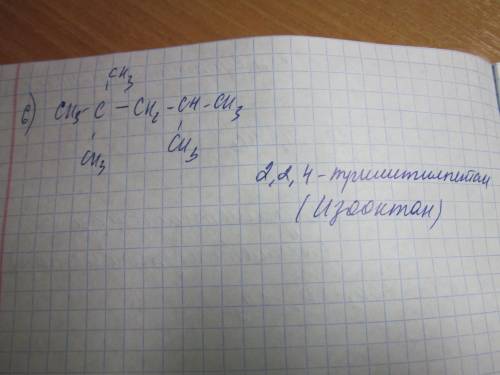 CH₃
б) CH₃ - C - CH₂ - CH - CH₃
CH₃ CH₃
2,2,4-триметилпентан
(Изооктан)